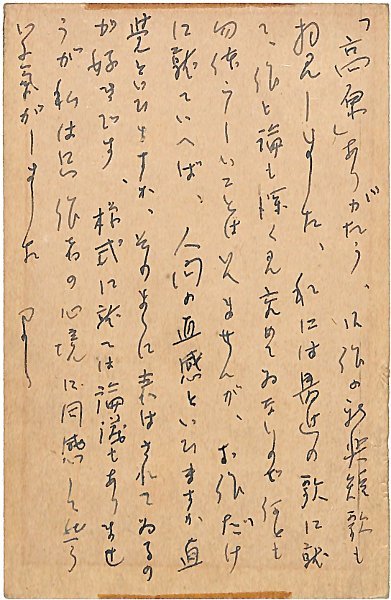 「高原」ありがたう、御作の新興短歌も
拝見しました、私には最近の歌に就
て、作と論も深く見究めてゐないので何とも
勿体らしいことはいへませんが、お作だけ
に就ていへば、人間の直感といひますか直
覚といひますか、そのまゝに表はされてゐるの
が好きです、様式に就ては論議もありませ
うが私は只作者の心境に同感し
気がしました